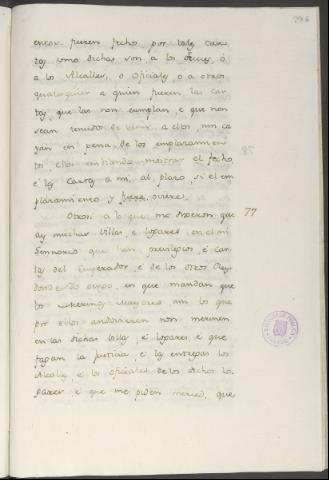 encox fueren fecho por tales car
tas como dichas son, a los Jueces, o
a los Alcalles, o oficiales, o a otros
qualesquier a quien fueren las car
tas, que las non cumplan, e que non
sean tenudos de venir a ellos nin ca
yan en pena de los emplazamien
tos, ellos enbiando mostrar el fecho,
e las cartas a mi al plazo, si el em
plazamiento y fuere, oviere.
Otrosi a lo que me dixeron, que 77
ay muchas Villas, e logares en el mi
Sennorio que han previlegios, e car
tas del Emperador, e de los otros Reyes
donde yo vengo, en que mandan que
los Merinos Mayores nin los que
por ellos andovieren non merinen
en las dichas Villas, e logares, e que
fagan la justicia, e la entreguen los
Alcalles, e los oficiales de los dichos lo
gares, e que me piden merced, que